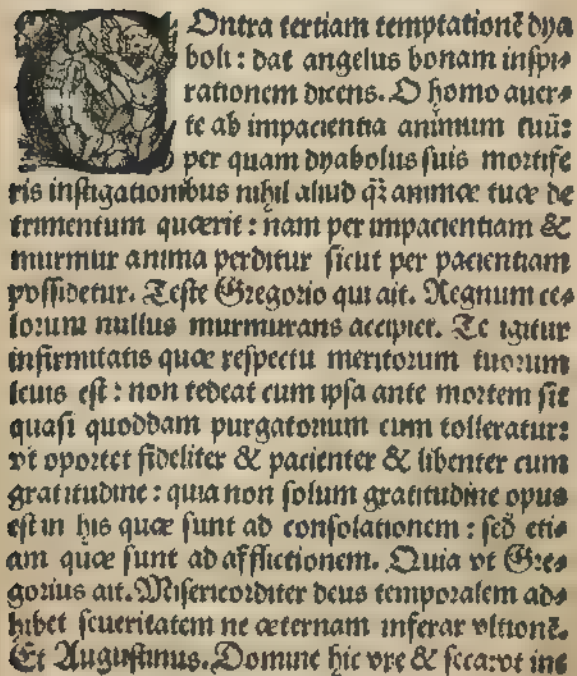 COntra tertiam temptationē dya
boli: dat angelus bonam inspi-
rationem dicens. O homo auer-
te ab impacientia animum tuū:
per quam dyabolus suis mortife
ris instigationibus nihil aliud q̄ʒ animæ tuæ de
trimentum quærit: nam per impacientiam &
murmur anima perditur sicut per pacientiam
possidetur. Teste Gregorio qui ait. Regnum ce-
lorum nullus murmurans accipiet. Te igitur
infirmitatis quæ respectu meritorum tuorum
leuis est: non tedeat cum ipsa ante mortem sit
quasi quoddam purgatorium cum tolleratur:
vt oportet fideliter & pacienter & libenter cum
gratitudine: quia non solum gratitudine opus
est in his quæ sunt ad consolationem: sed eti-
am quæ sunt ad afflictionem. Quia vt Gre-
gorius ait. Misericorditer deus temporalem ad-
hibet seueritatem ne æternam inferat vltionē.
Et Augustinus. Domine hic vre & seca: vt in e